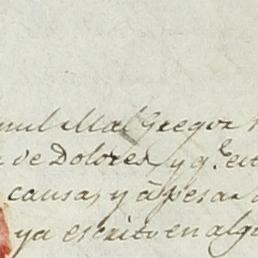 Mac Gregor
de Dolores y q.e est
causa, y a pesar
ya escrito en alg